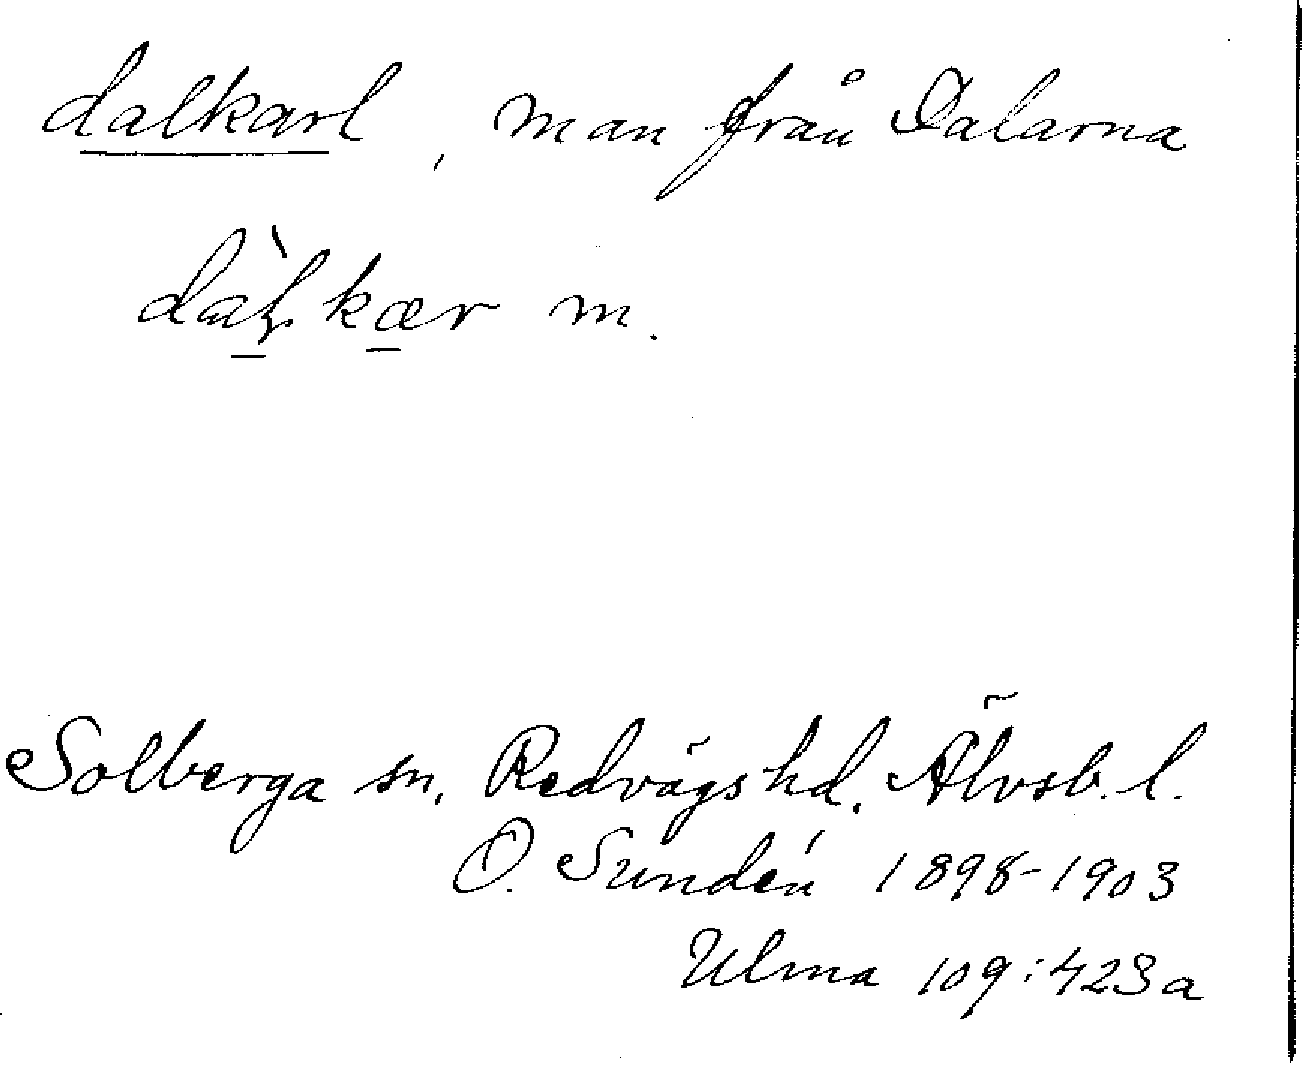 dalkarl, man från Dalarna
m.
Solberga sn, Redvägs hd. Älvsb. l.
O. Sundén 1898-1903
Ulma 109:423a